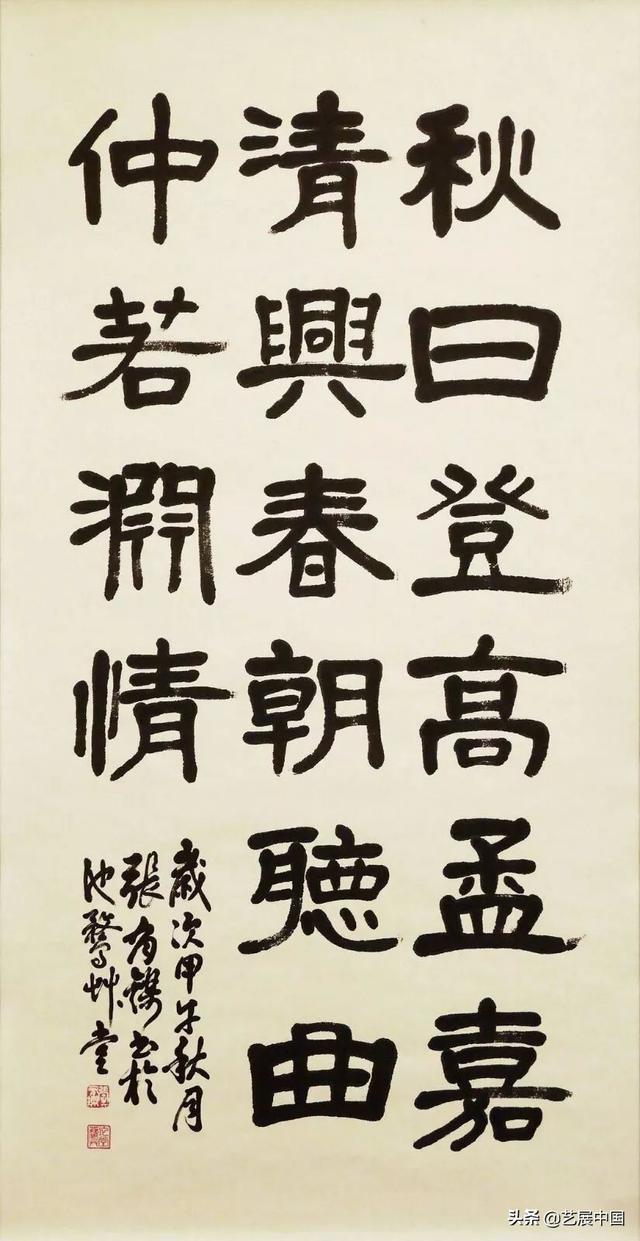 秋日登高孟嘉
清興春朝聽曲
仲若淵情
歲次甲午秋月
張有書於
池艸堂
头条 @艺展中国